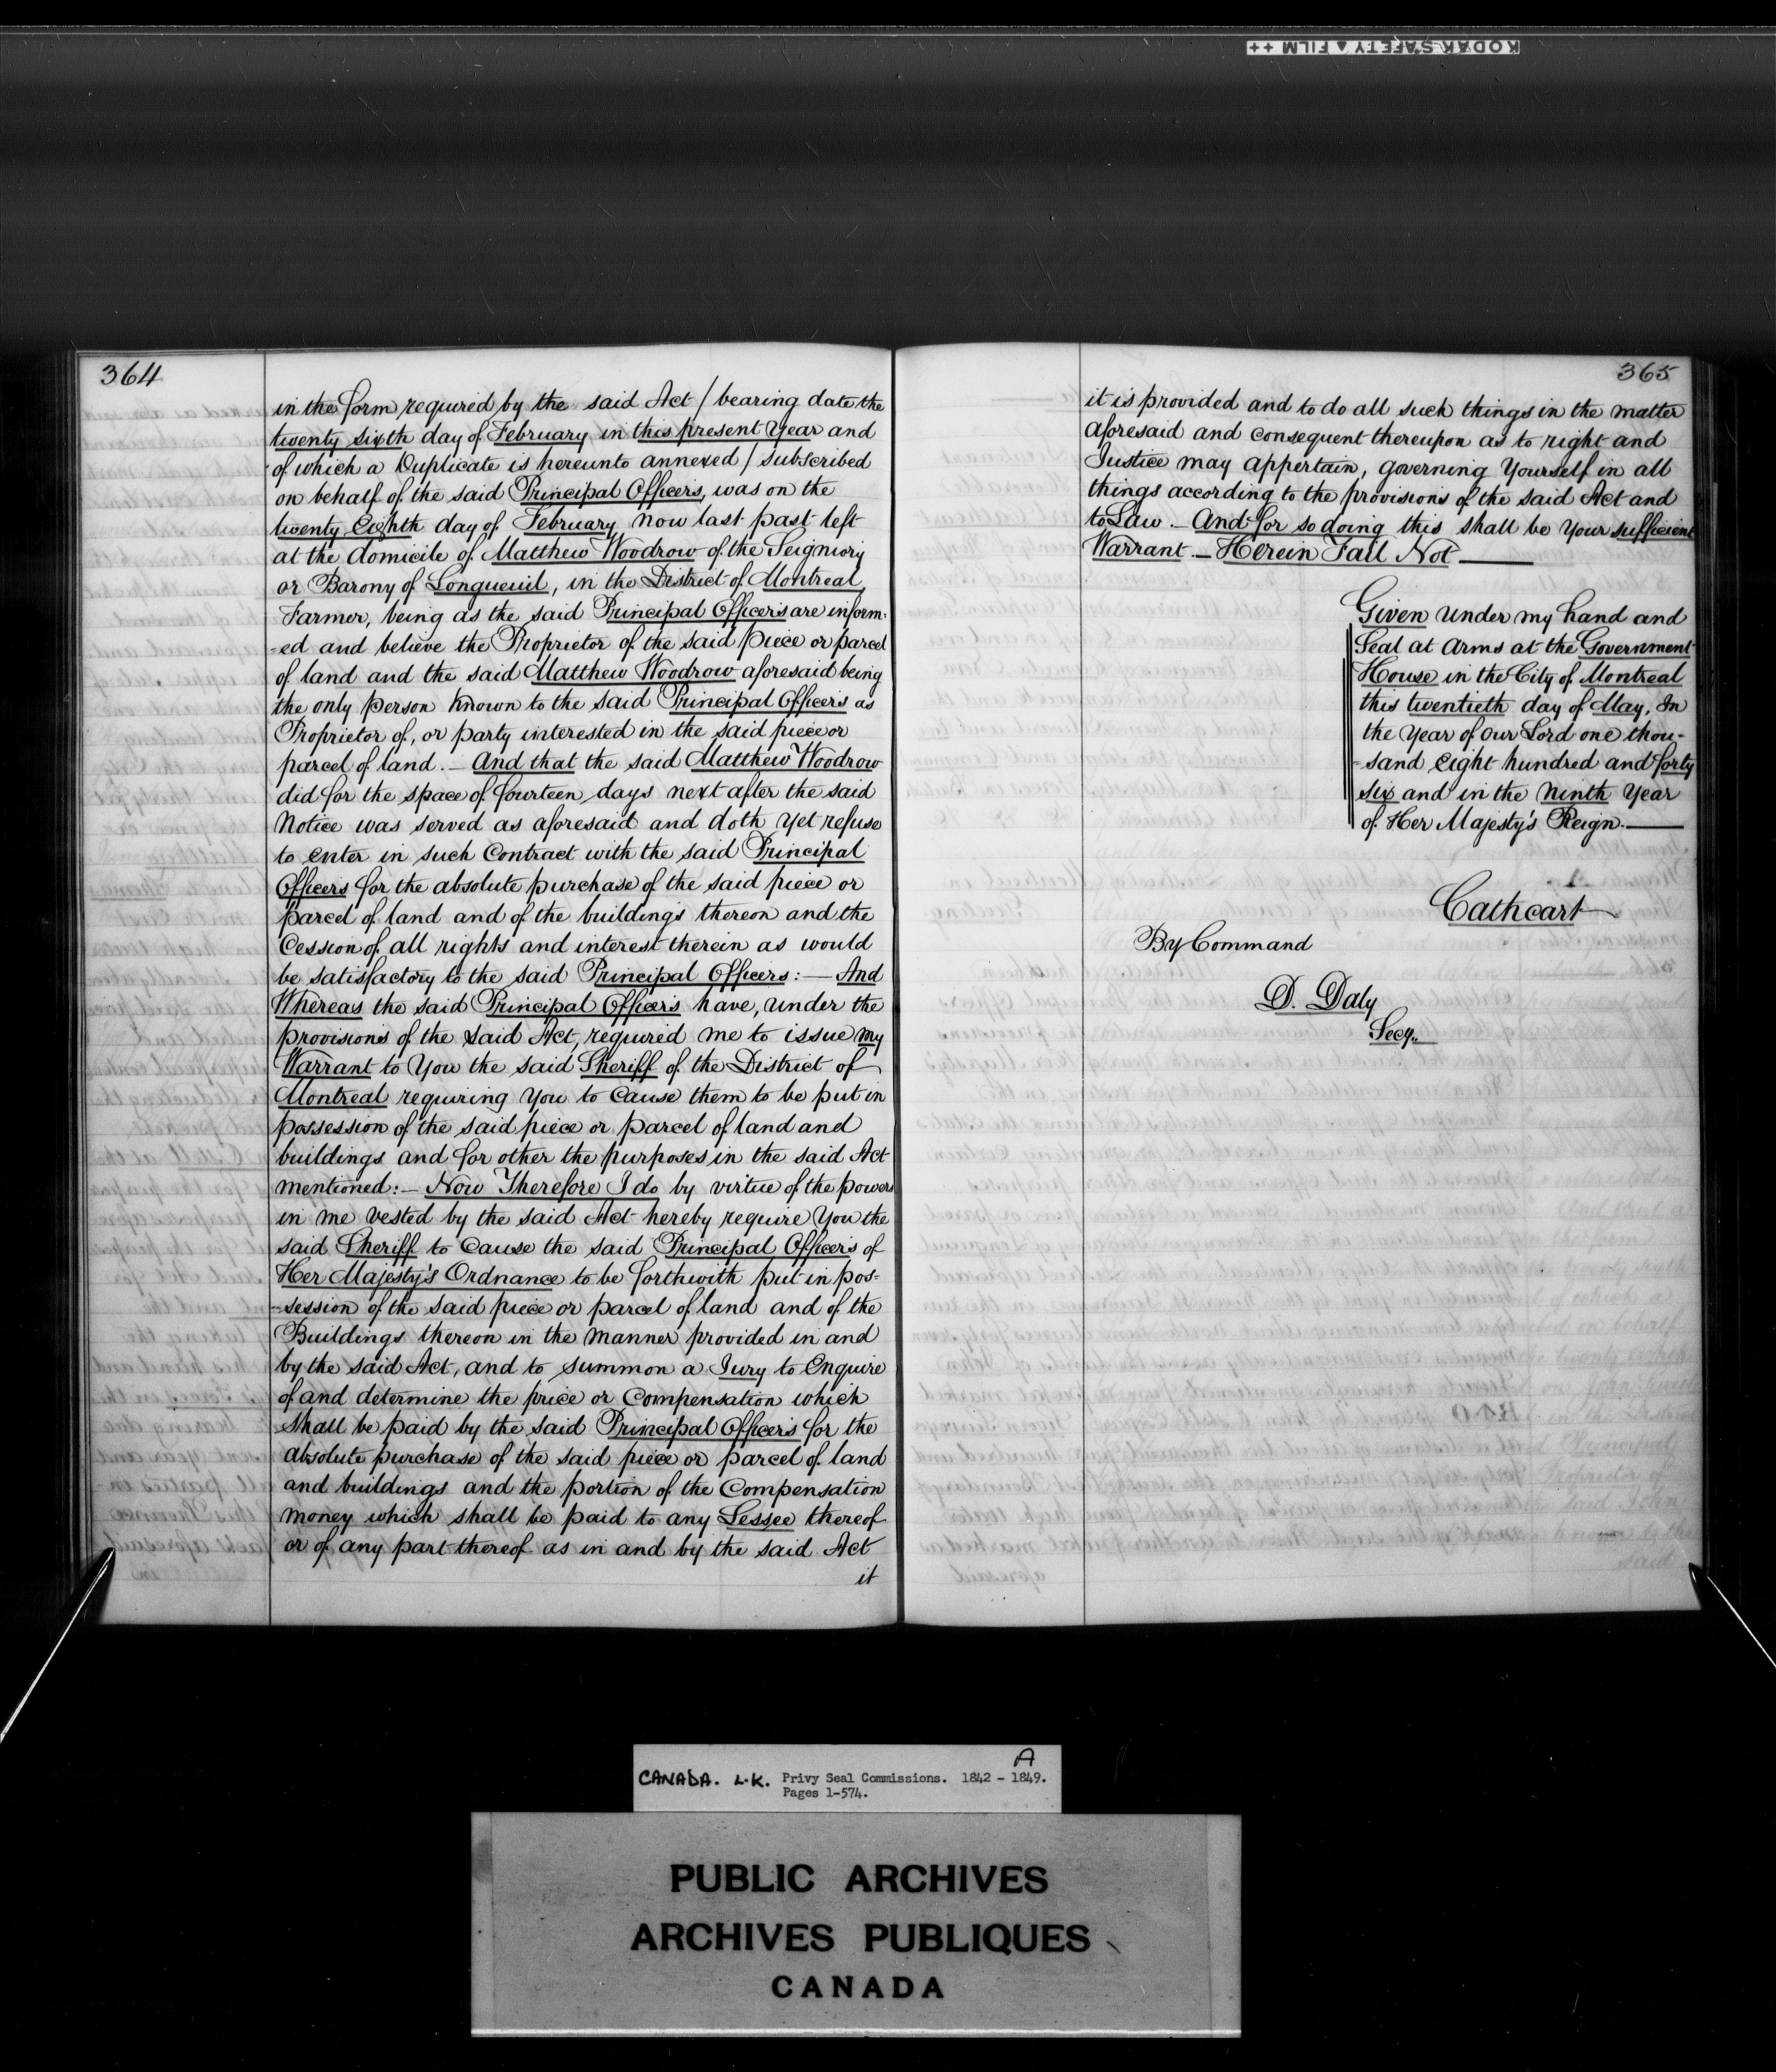 KODAK SAFETY ▲ FILM ++
364
in the form required by the said Act / bearing date the
twenty sixth day of February in this present Year and
of which a Duplicate is hereunto annexed / subscribed
on behalf of the said Principal Officers, was on the
twenty Eighth day of February now last past left
at the domicile of Matthew Woodrow of the Seigniory
or Barony of Longueuil, in the District of Montreal,
Farmer, being as the said Principal Officers are inform-
-ed and believe the Proprietor of the said piece or parcel
of land and the said Matthew Woodrow aforesaid being
the only person known to the said Principal Officers as
Proprietor of, or party interested in the said piece or
parcel of land. — And that the said Matthew Woodrow
did for the space of fourteen days next after the said
Notice was served as aforesaid and doth yet refuse
to enter in such Contract with the said Principal
Officers for the absolute purchase of the said piece or
parcel of land and of the buildings thereon and the
Cession of all rights and interest therein as would
be satisfactory to the said Principal Officers: — And
Whereas the said Principal Officers have, under the
provisions of the said Act, required me to issue my
Warrant to You the said Sheriff of the District of
Montreal requiring You to cause them to be put in
possession of the said piece or parcel of land and
buildings and for other the purposes in the said Act
mentioned: — Now Therefore I do by virtue of the powers
in me vested by the said Act hereby require You the
said Sheriff to cause the said Principal Officers of
Her Majesty's Ordnance to be forthwith put in pos-
-session of the said piece or parcel of land and of the
Buildings thereon in the manner provided in and
by the said Act, and to summon a Jury to Enquire
of and determine the price or Compensation which
shall be paid by the said Principal Officers for the
absolute purchase of the said piece or parcel of land
and buildings and the portion of the Compensation
money which shall be paid to any Lessee thereof
or of any part thereof as in and by the said Act
it
365
it is provided and to do all such things in the matter
aforesaid and consequent thereupon as to right and
Justice may appertain, governing Yourself in all
things according to the provisions of the said Act and
to Law. — And for so doing this shall be Your sufficient
Warrant. — Herein Fail Not —
Given under my hand and
Seal at Arms at the Government
House in the City of Montreal
this twentieth day of May, In
the Year of Our Lord one thou-
-sand Eight hundred and forty
six and in the Ninth Year
of Her Majesty's Reign. —
Cathcart
By Command
D. Daly
Secy.
A
CANADA. L.K. Privy Seal Commissions. 1842 - 1849.
Pages 1-574.
PUBLIC ARCHIVES
ARCHIVES PUBLIQUES
CANADA